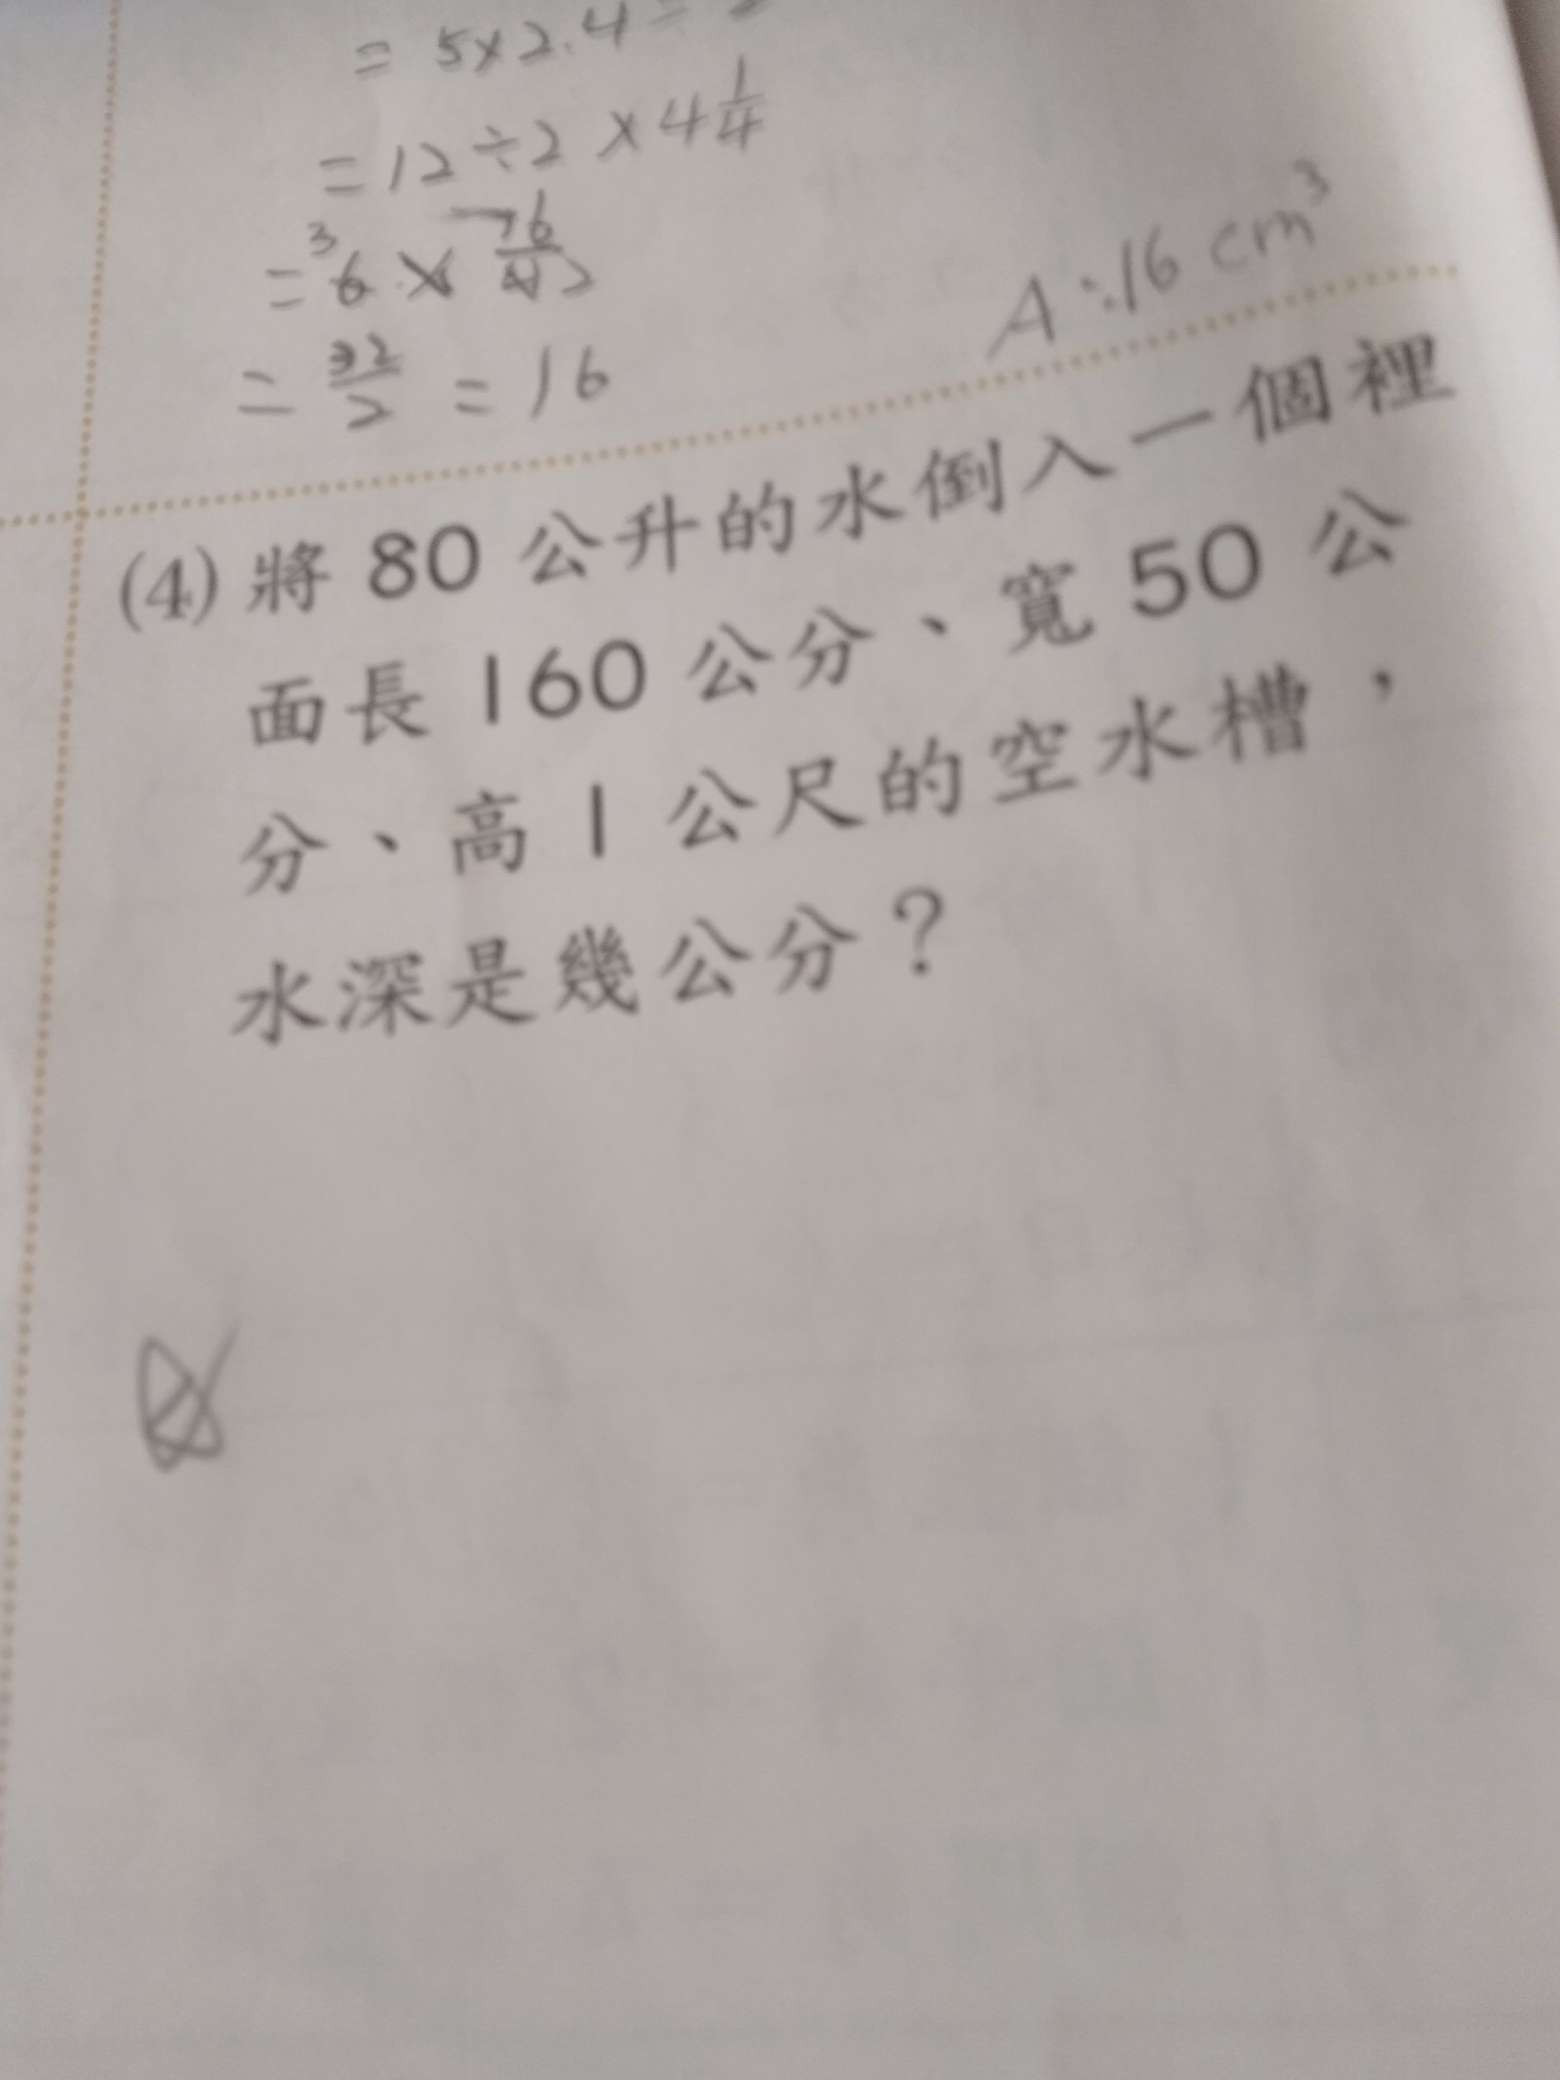 = 5×2.4÷2
= 12÷2×4\frac{1}{4}
= 6 ×
= \frac{32}{2} = 16
A:16 cm³
(4) 將 80 公升的水倒入一個裡
面長 160 公分、寬 50 公
分、高 1 公尺的空水槽,
水深是幾公分?